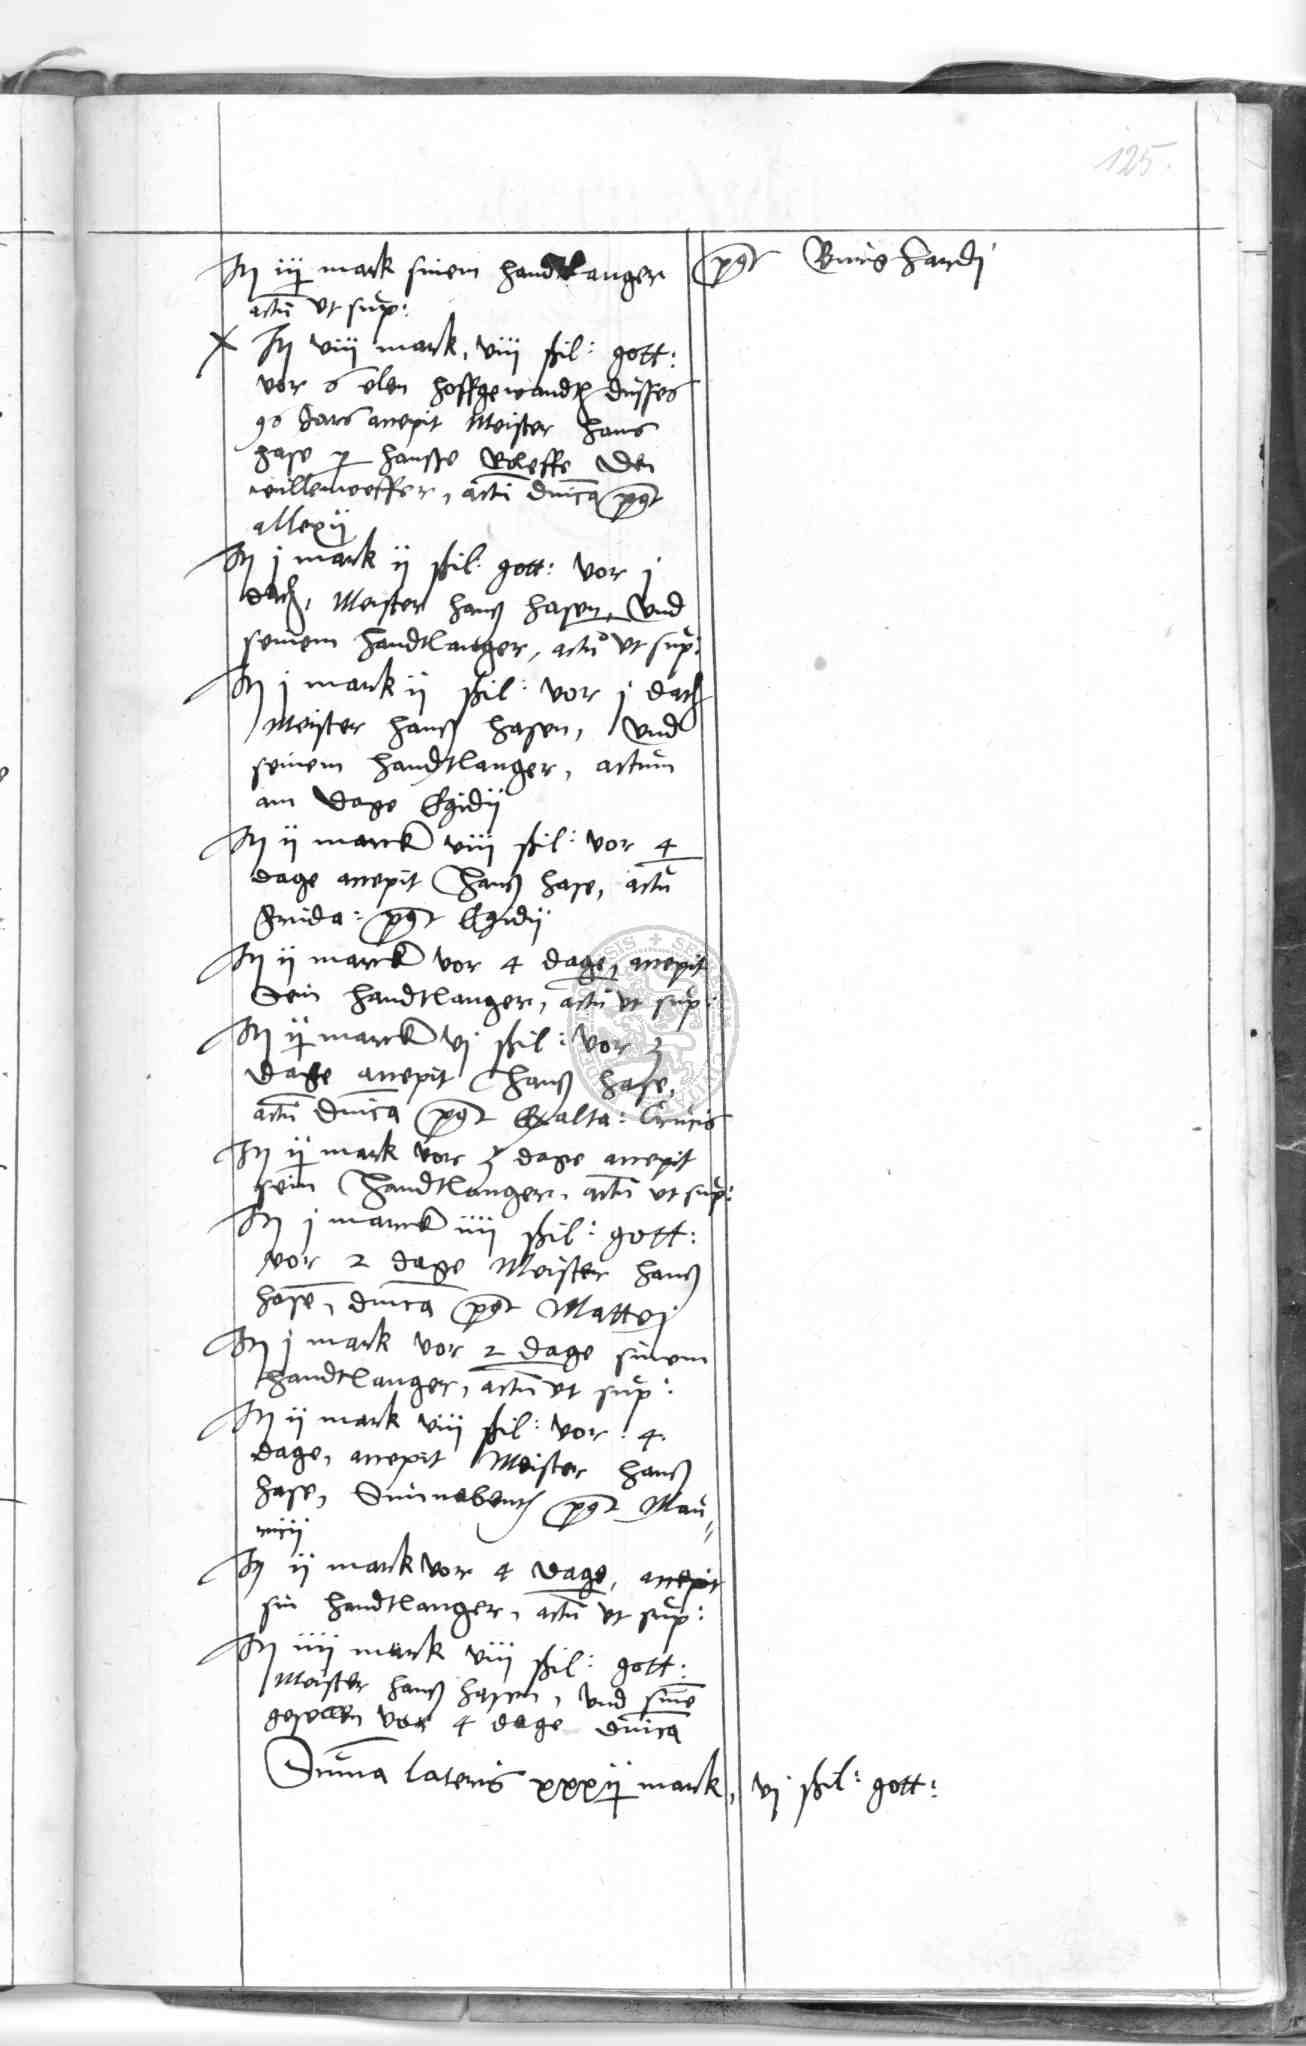 125.
It iij mark sinem handtlanger
post Burchardi
actū ut sup:
X It viij mark, viij ßil: gott:
vor 6 elen hoffgewandt dusses
96 Jars accepit Meister hans
hase per hansse Roleffe den
wullenweffer, actū dnīca post
allexij
It j mark ij ßil: gott: vor j
dach, Meister hanß hasen, und
seinem handtlanger, actū ut sup:
It j mark ij ßil: vor j dach
Meister hanß hasen, und
seinem handtlanger, actum
am dage Egidij
It ij marck viij ßil: vor 4
dage accepit Hanß hase, actū
Frida: post Egidij
It ij marck vor 4 dage, accepit
Sein handtlanger, actū ut sup:
It ij marck vj ßil: vor 3
dage accepit Hanß hase,
actū dnīca post Exalta: Crucis
It ij mark vor 3 dage accepit
sein Handtlanger, actū ut sup:
It j marck iiij ßil: gott:
vor 2 dage Meister hanß
hasē, dnīca post Mattej
It j mark vor 2 dage sinem
handtlanger, actū ut sup:
It ij mark viij ßil: vor 4
dage, accepit Meister hanß
hase, Sunnabent post Mau„
ricij
It ij mark vor 4 dage, accepit
sin handtlanger, actū ut sup:
It iiij mark viij ßil: gott:
Meister hanß hasen, und sinē
gesellen vor 4 dage dnīca
Sūma lateris xxxij mark, vj ßil: gott: